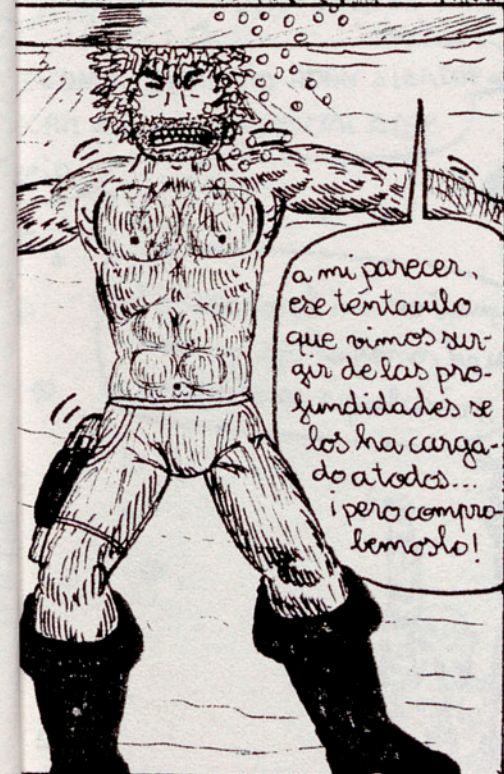 a mi parecer,
ese téntaculo
que vimos sur-
gir de las pro-
fundidades se
los ha carga-
do a todos...
¡pero compro-
bemoslo!